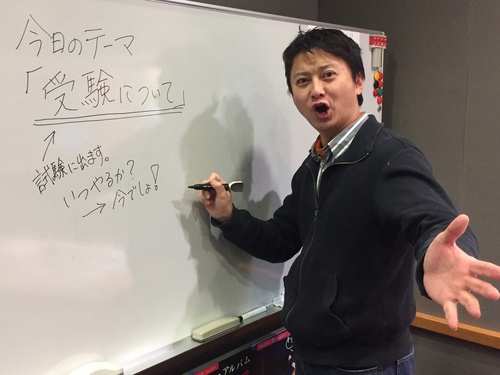 今日のテーマ
「受験について」
試験に出ます。
いつやるか?
→今でしょ!
アルバム